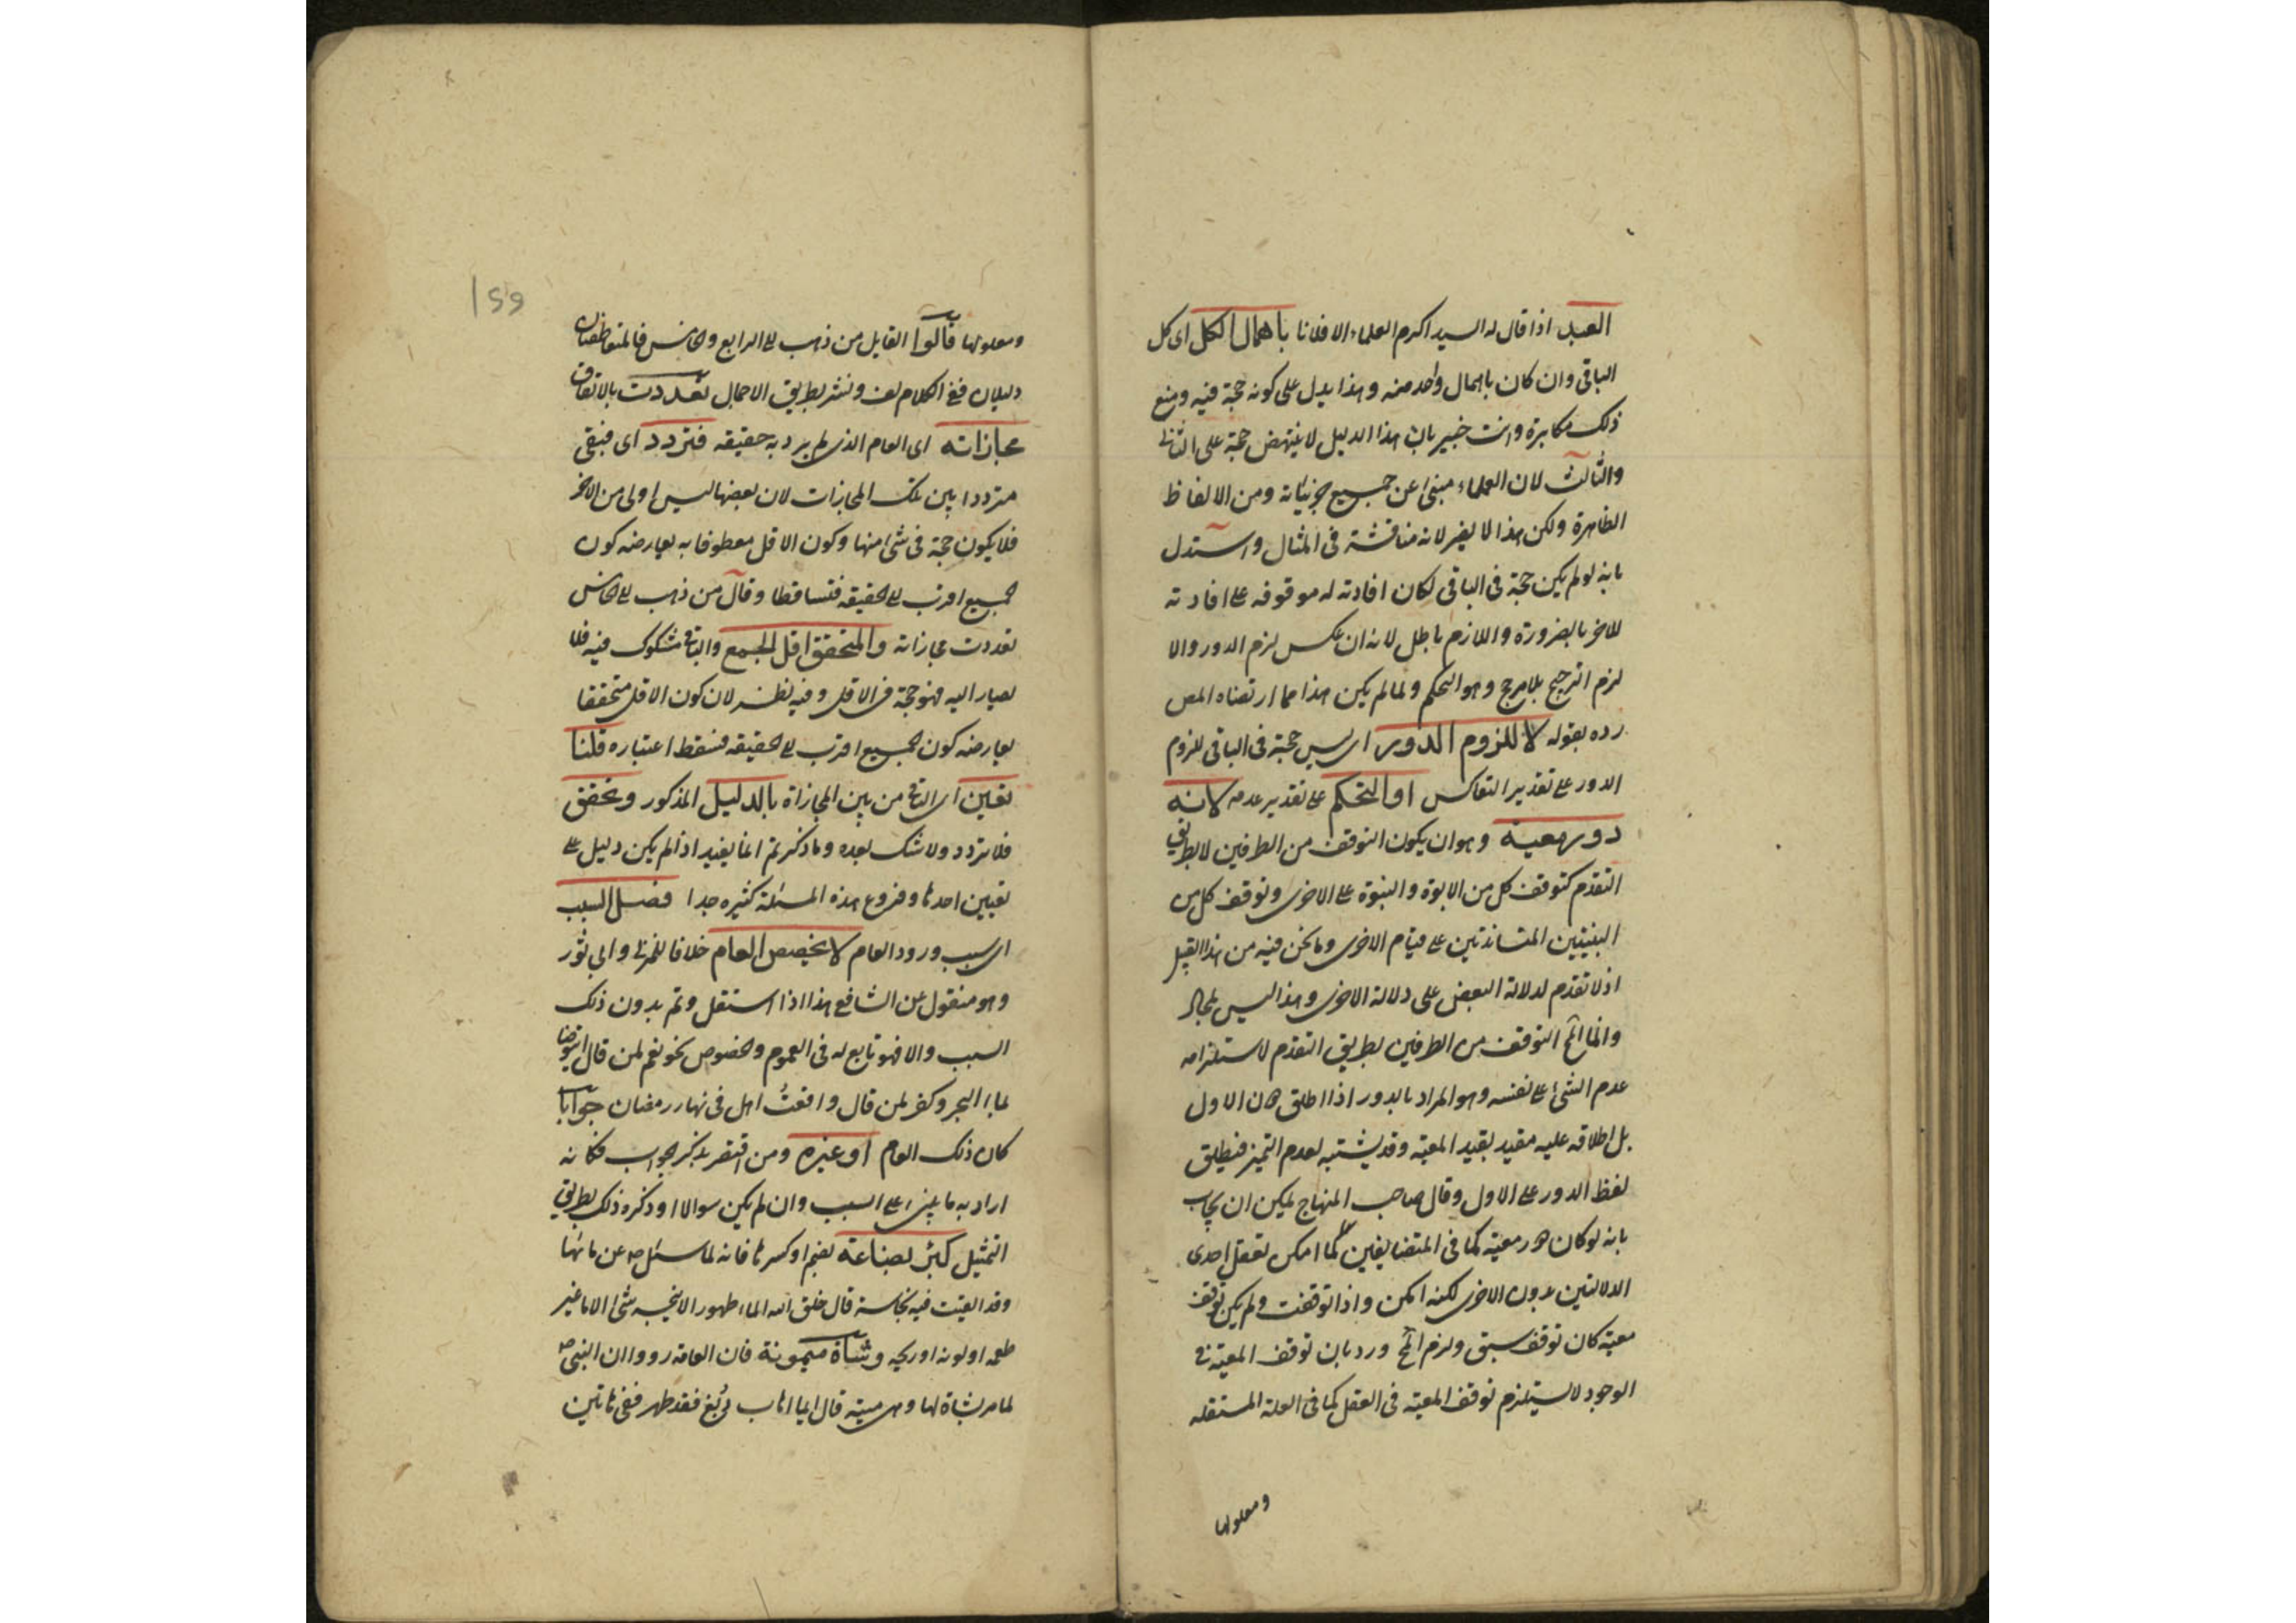 العبد اذا قال له السيد اكرم العلماء الا فلانا باهمال الكل اى كل
الباقى وان كان باهمال واحد منه وهذا يدل على كونه حجة فيه ومنع
ذلك مكابرة وانت خبير بان هذا الدليل لا ينهض حجة على الثانى
والثالث لان العلماء مبنئ عن جميع جزئياته ومن الالفاظ
الظاهرة ولكن هذا لا يضر لانه مناقشة فى المثال واستدل
بانه لو لم يكن حجة فى الباقى لكان افادته له موقوفه على افادته
للاخر بالضرورة واللازم باطل لانه ان عكس لزم الدور والا
لزم الترجيح بلا مرجح وهو التحكم ولما لم يكن هذا مما ارتضاه المص
رده بقوله لا للزوم الدور اى ليس حجة فى الباقى للزوم
الدور على تقدير التعاكس او التحكم على تقدير عدمه لانه
دور معية وهو ان يكون التوقف من الطرفين لا بطريق
التقدم كتوقف كل من الابوة والبنوة على الاخرى وتوقف كل من
اللبنتين المتساندتين على قيام الاخرى وما نحن فيه من هذا القبيل
اذ لا تقدم لدلالة البعض على دلالة الاخرى وهذا ليس بمحال
وانما المح التوقف من الطرفين بطريق التقدم لاستلزامه
عدم الشئ على نفسه وهو المراد بالدور اذا اطلق دون الاول
بل اطلاقه عليه مقيد بقيد المعية وقد يشتبه لعدم التميز فيطلق
لفظ الدور على الاول وقال صاحب المنهاج يمكن ان يجاب
بانه لو كان دور معية كما فى المتضايفين لما امكن تعقل احدى
الدلالتين بدون الاخرى لكنه امكن واذا توقفت ولم يكن توقف
معية كان توقف سبق ولزم المح ورد بان توقف المعية فى
الوجود لا يستلزم توقف المعية فى العقل كما فى العلة المستقله
ومعلولها
159
ومعلولها قالوا القايل من ذهب الى الرابع والخامس فالمتعاطفان
دليلان ففى الكلام لف ونشر بطريق الاجمال تعددت بالاتفاق
مجازاته اى العام الذى لم يرد به حقيقه فتردد اى فبقى
مترددا بين تلك المجازات لان بعضها ليس اولى من الاخر
فلا يكون حجة فى شئ منها وكون الاقل معطوفا به يعارضه كون
الجميع اقرب الى الحقيقه فتساقطا وقال من ذهب الى الخامس
تعددت مجازاته والمتحقق اقل الجمع والباقى مشكوك فيه فلا
يصار اليه فهو حجة فى الاقل وفيه نظر لان كون الاقل متحققا
يعارضه كون الجميع اقرب الى الحقيقه فسقط اعتباره قلنا
تعين اى الباقى من بين المجازاة بالدليل المذكور وتحقق
فلا تردد ولا شك بعده وما ذكرتم انما يفيد اذا لم يكن دليل على
تعيين احدها وفروع هذه المسئلة كثيره جدا فصل السبب
اى سبب ورود العام لا يخصص العام خلافا للمزنى وابى ثور
وهو منقول عن الشافعى هذا اذا استقل وتم بدون ذلك
السبب والا فهو تابع له فى العموم والخصوص نحو نعم لمن قال اتوضا
بماء البحر وكفر لمن قال واقعت اهلى فى نهار رمضان جوابا
كان ذلك العام او غيره ومن اقتصر بذكر الجواب فكانه
اراد به ما يبنى على السبب وان لم يكن سوالا او ذكره ذلك بطريق
التمثيل كبئر بضاعة بضم او كسرها فانه لما سئل ص عن مائها
وقد القيت فيه نجاسة قال خلق الله الماء طهورا لا ينجسه شئ الا ما غير
طعمه او لونه او ريحه وشاة ميمونة فان العامه رووا ان النبى ص
لما مر بشاة لها وهى ميتة قال ايما اهاب دُبغ فقد طهر ففى هاتين